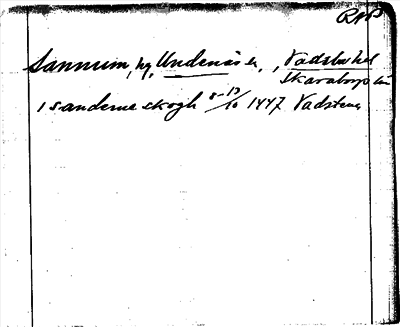 RAP
Sannum, hg, Undenäs sn, Vadsbo hd
Skaraborgs län
i sandeme skogh 8-13/10 1447 Vadstena